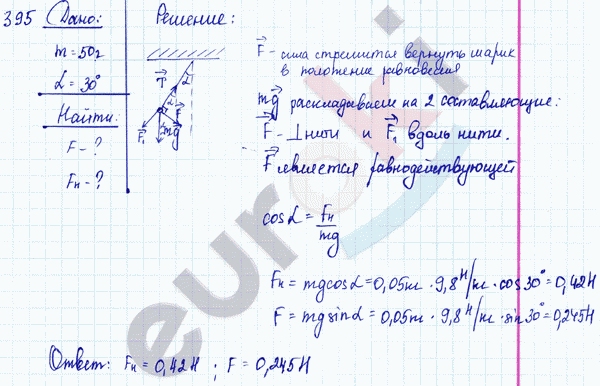 395 Дано: Решение:
m = 50г
α = 30°
Найти:
F - ?
Fн - ?
T α α F F₁ mg
F - сила стремится вернуть шарик
в положение равновесия
mg раскладываем на 2 составляющие:
F - ⊥ нити и F₁ вдоль нити.
F является равнодействующей
cosα = Fн/mg
Fн = mgcosα = 0,05кг · 9,8 Н/кг · cos30° = 0,42Н
F = mgsinα = 0,05кг · 9,8 Н/кг · sin30° = 0,245Н
Ответ: Fн = 0,42Н ; F = 0,245Н
euroki